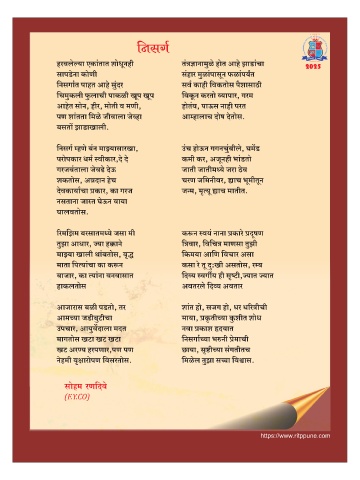 निसर्ग
2025
हरवलेल्या एकांतात शोधूनही
सापडेना कोणी
निसर्गात पाहत आहे सुंदर
चिमुकली फुलाची पाकळी खूप खूप
आहेत सोन, हीर, मोती व मणी,
पण शांतता मिळे जीवाला जेव्हा
बसतो झाडाखाली.
निसर्ग म्हणे बंन माझ्यासारखा,
परोपकार धर्म स्वीकार,दे दे
गरजवंताला जेवढे देऊ
शकतोस, अन्नदान हेच
देवकार्याचा प्रकार, का गरज
नसताना जास्त घेऊन वाया
घालवतोस.
रिमझिम बरसातमध्ये जसा मी
तुझा आधार, ज्या हक्काने
माझ्या खाली थांबतोस, वृद्ध
माता पित्यांचा का करून
बाजार, का त्यांना वनवासात
हाकलतोस
आजारास बळी पडतो, तर
आमच्या जडीबुटीचा
उपचार, आयुर्वेदाला मदत
मागतोस खटा खट खटा
खट अरण्य हरपणार,पण पण
नेहमी वृक्षारोपण विसरतोस.
सोहम रणदिवे
(F.Y.CO)
तंत्रज्ञानामुळे होत आहे झाडांचा
संहार मुळांपासून फळांपर्यंत
सर्व काही विकतोस पैशासाठी
विकून करतो व्यापार, गरम
होतंय, पाऊस नाही परत
आम्हालाच दोष देतोस.
उंच होऊन गगनचुंबीले, घमेंड
कमी कर, अजूनही भांडतो
जाती जातीमध्ये जरा ठेव
चरण जमिनीवर, ह्याच भूमीतून
जन्म, मृत्यू ह्याच मातीत.
करून स्वयं नाना प्रकारे प्रदूषण
त्रिवार, विचित्र माणसा तुझी
किमया आणि विचार असा
कसा रे तू दुःखी असतोस, रम्य
दिव्य स्वर्गीय ही सृष्टी,ज्यात ज्यात
अवतरले दिव्य अवतार
शांत हो, सजग हो, धर धरित्रीची
माया, प्रकृतीच्या कुशीत शोध
नवा प्रकाश हृदयात
निसर्गाच्या भरुनी प्रेमाची
छाया, सृष्टीच्या संगतीतच
मिळेल तुझा सच्चा विश्वास.
https://www.ritppune.com